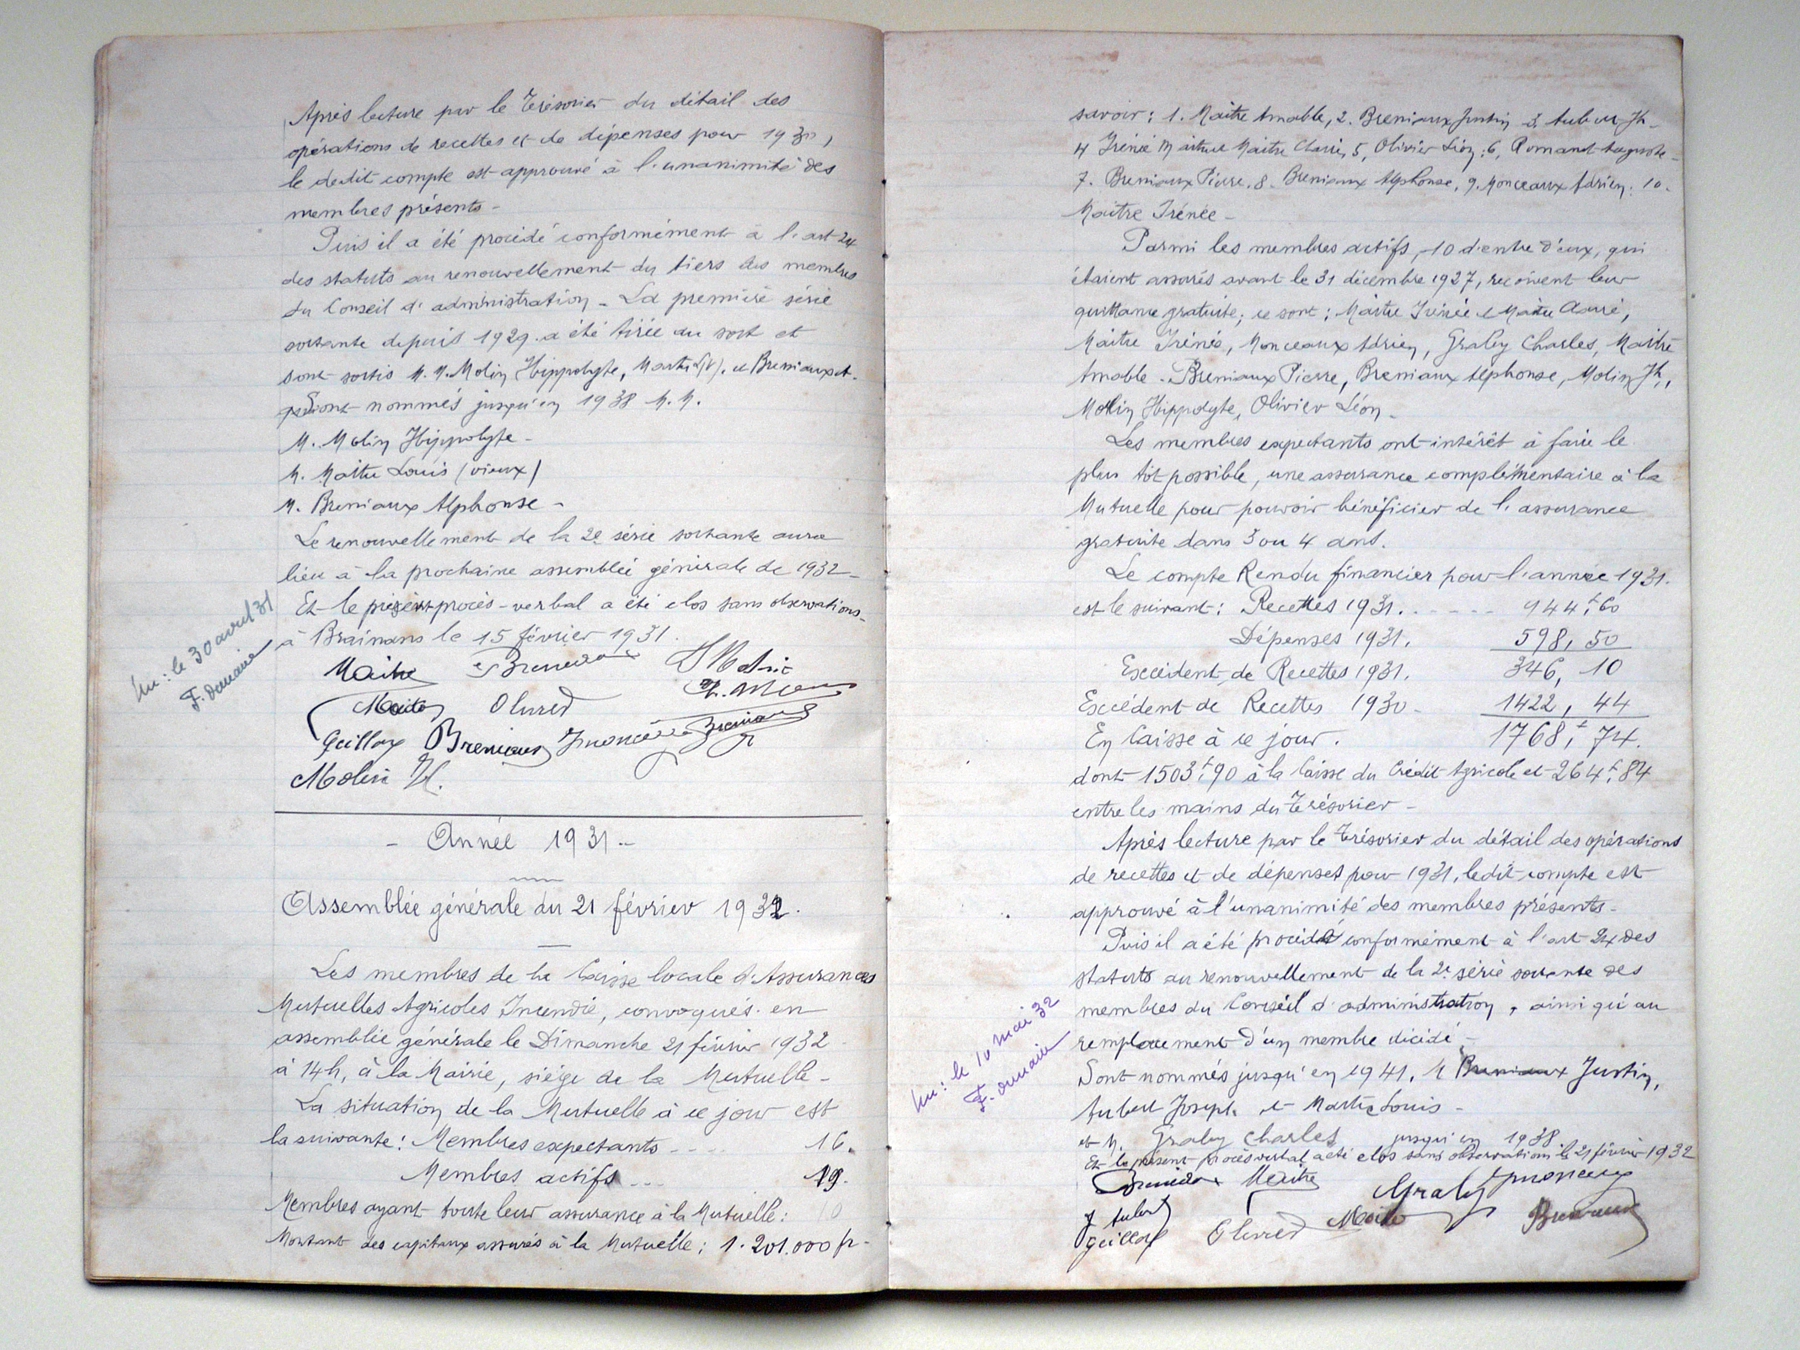 Après lecture par le Trésorier du détail des
opérations de recettes et de dépenses pour 1930,
le dedit compte est approuvé à l'unanimité des
membres présents -
Puis il a été procédé conformément à l'art 24
des statuts au renouvellement du tiers des membres
du Conseil d'administration - La première série
sortante depuis 1929 a été tirée au sort et
sont sortis M.M. Molin Hippolyte, et Breniaux
Sont nommés jusqu'en 1938 M.M.
M. Molin Hippolyte -
M. Maitre Louis (vieux)
M. Breniaux Alphonse -
Le renouvellement de la 2e série sortante aura
lieu à la prochaine assemblée générale de 1932 -
Et le présent procès-verbal a été clos sans observations -
à Brainans le 15 février 1931.
Vu : le 30 avril 31
Maitre
Maitre Olivier
Guillox Breniaux Breniaux
Molin Jh.
- Année 1931 -
Assemblée générale du 21 février 1932.
Les membres de la Caisse locale d'Assurances
Mutuelles Agricoles Incendie, convoqués en
assemblée générale le Dimanche 21 février 1932
à 14h, à la Mairie, siège de la Mutuelle -
La situation de la Mutuelle à ce jour est
la suivante : Membres expectants ---- 16.
Membres actifs --- 19.
Membres ayant toute leur assurance à la Mutuelle : 10
Montant des capitaux assurés à la Mutuelle : 1.201.000 fr -
savoir : 1. Maitre Amable, 2. Breniaux Justin 3 Aubert Jh -
4 Irénée Maitre Maitre Clavis, 5, Olivier Léon ; 6, Romanet Auguste -
7. Breniaux Pierre, 8. Breniaux Alphonse, 9. Monceaux Adrien ; 10.
Maitre Irénée -
Parmi les membres actifs, 10 d'entre d'eux, qui
étaient assurés avant le 31 décembre 1927, reçoivent leur
quittance gratuite ; ce sont : Maitre Irénée Maitre
Maitre Irénée, Monceaux Adrien, Graby Charles, Maitre
Amable - Breniaux Pierre, Breniaux Alphonse, Molin Jh,
Molin Hippolyte, Olivier Léon -
Les membres expectants ont intérêt à faire le
plus tôt possible, une assurance complémentaire à la
Mutuelle pour pouvoir bénéficier de l'assurance
gratuite dans 3 ou 4 ans.
Le compte Rendu financier pour l'année 1931.
est le suivant : Recettes 1931. ----- 944f,60
Dépenses 1931. 598,50
Excédent de Recettes 1931. 346,10
Excédent de Recettes 1930 - 1422,44
En Caisse à ce jour. 1768f,74.
dont 1503f,90 à la Caisse du Crédit Agricole et 264f,84
entre les mains du Trésorier -
Après lecture par le Trésorier du détail des opérations
de recettes et de dépenses pour 1931, ledit compte est
approuvé à l'unanimité des membres présents -
Puis il a été procédé conformément à l'art 24 des
statuts au renouvellement de la 2e série sortante des
membres du Conseil d'administration, ainsi qu'au
remplacement d'un membre décédé -
Vu : le 10 mai 32
Sont nommés jusqu'en 1941, M Breniaux Justin,
Aubert Joseph et Maitre Louis -
et M. Graby Charles jusqu'en 1938
Et le présent procès verbal a été clos sans observations le 21 février 1932
Breniaux Maitre Graby Monceaux
J Aubert
Guillox Olivier Maitre Breniaux